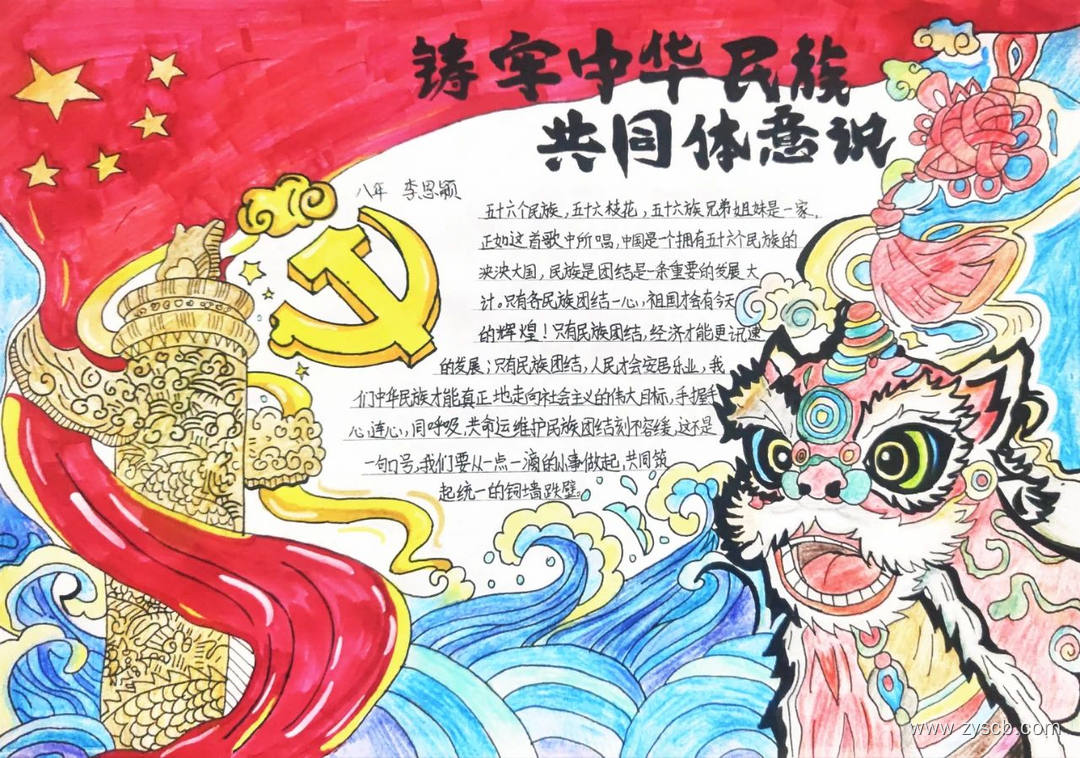 铸牢中华民族
共同体意识
八年 李思颖
五十六个民族,五十六枝花,五十六族兄弟姐妹是一家,
正如这首歌中所唱,中国是一个拥有五十六个民族的
泱泱大国,民族是团结是一条重要的发展大
计。只有各民族团结一心,祖国才会有今天
的辉煌!只有民族团结,经济才能更讯速
的发展;只有民族团结,人民才会安居乐业,我
们中华民族才能真正地走向社会主义的伟大目标,手握手
心连心,同呼吸,共命运维护民族团结刻不容缓,这不是
一句口号,我们要从一点一滴的小事做起,共同筑
起统一的铜墙跌壁。
www.zyscb.com